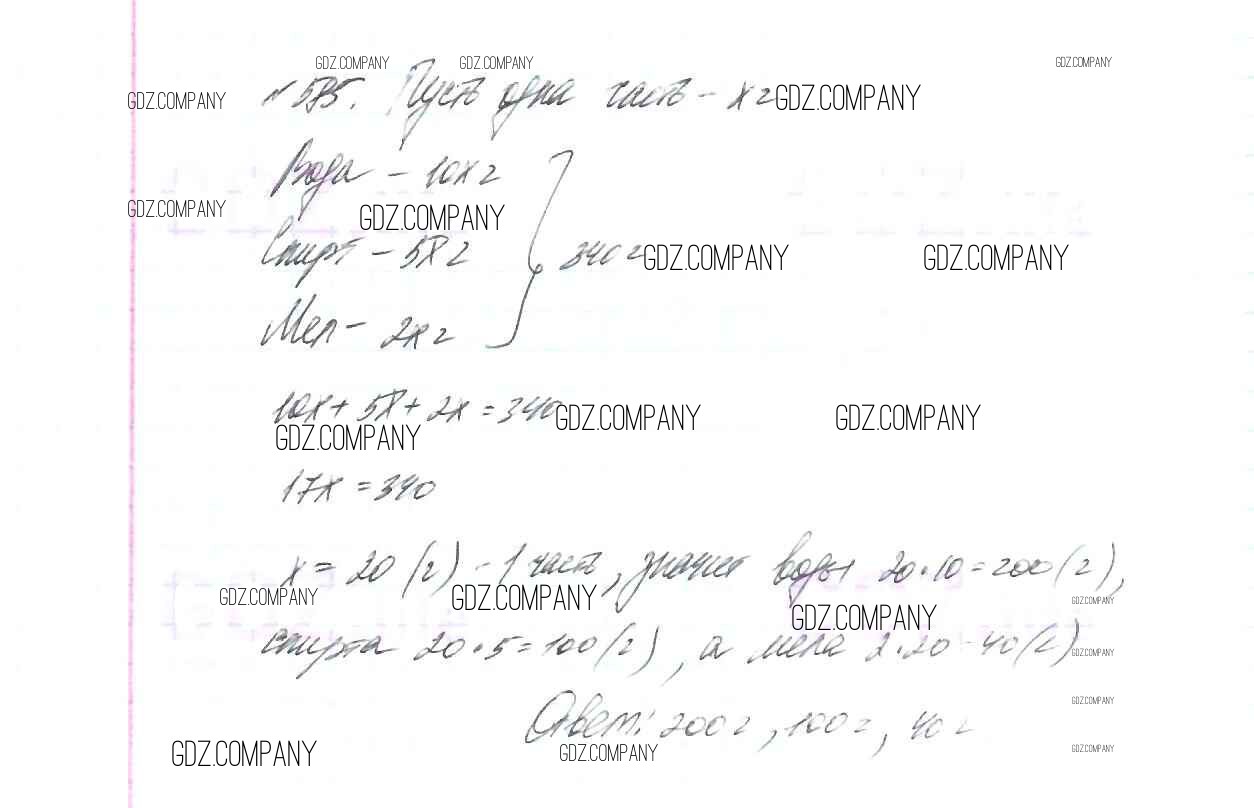 GDZ.COMPANY GDZ.COMPANY GDZ.COMPANY
GDZ.COMPANY №585. Пусть одна часть – x г GDZ.COMPANY
Вода – 10x г
GDZ.COMPANY GDZ.COMPANY
Спирт – 5x г 340 г GDZ.COMPANY GDZ.COMPANY
Мел – 2x г
10x + 5x + 2x = 340 GDZ.COMPANY GDZ.COMPANY
GDZ.COMPANY
17x = 340
x = 20 (г) – 1 часть, значит воды 20·10=200(г),
GDZ.COMPANY GDZ.COMPANY GDZ.COMPANY GDZ.COMPANY
спирта 20·5=100(г), а мела 2·20=40(г) GDZ.COMPANY
Ответ: 200 г, 100 г, 40 г GDZ.COMPANY
GDZ.COMPANY GDZ.COMPANY GDZ.COMPANY